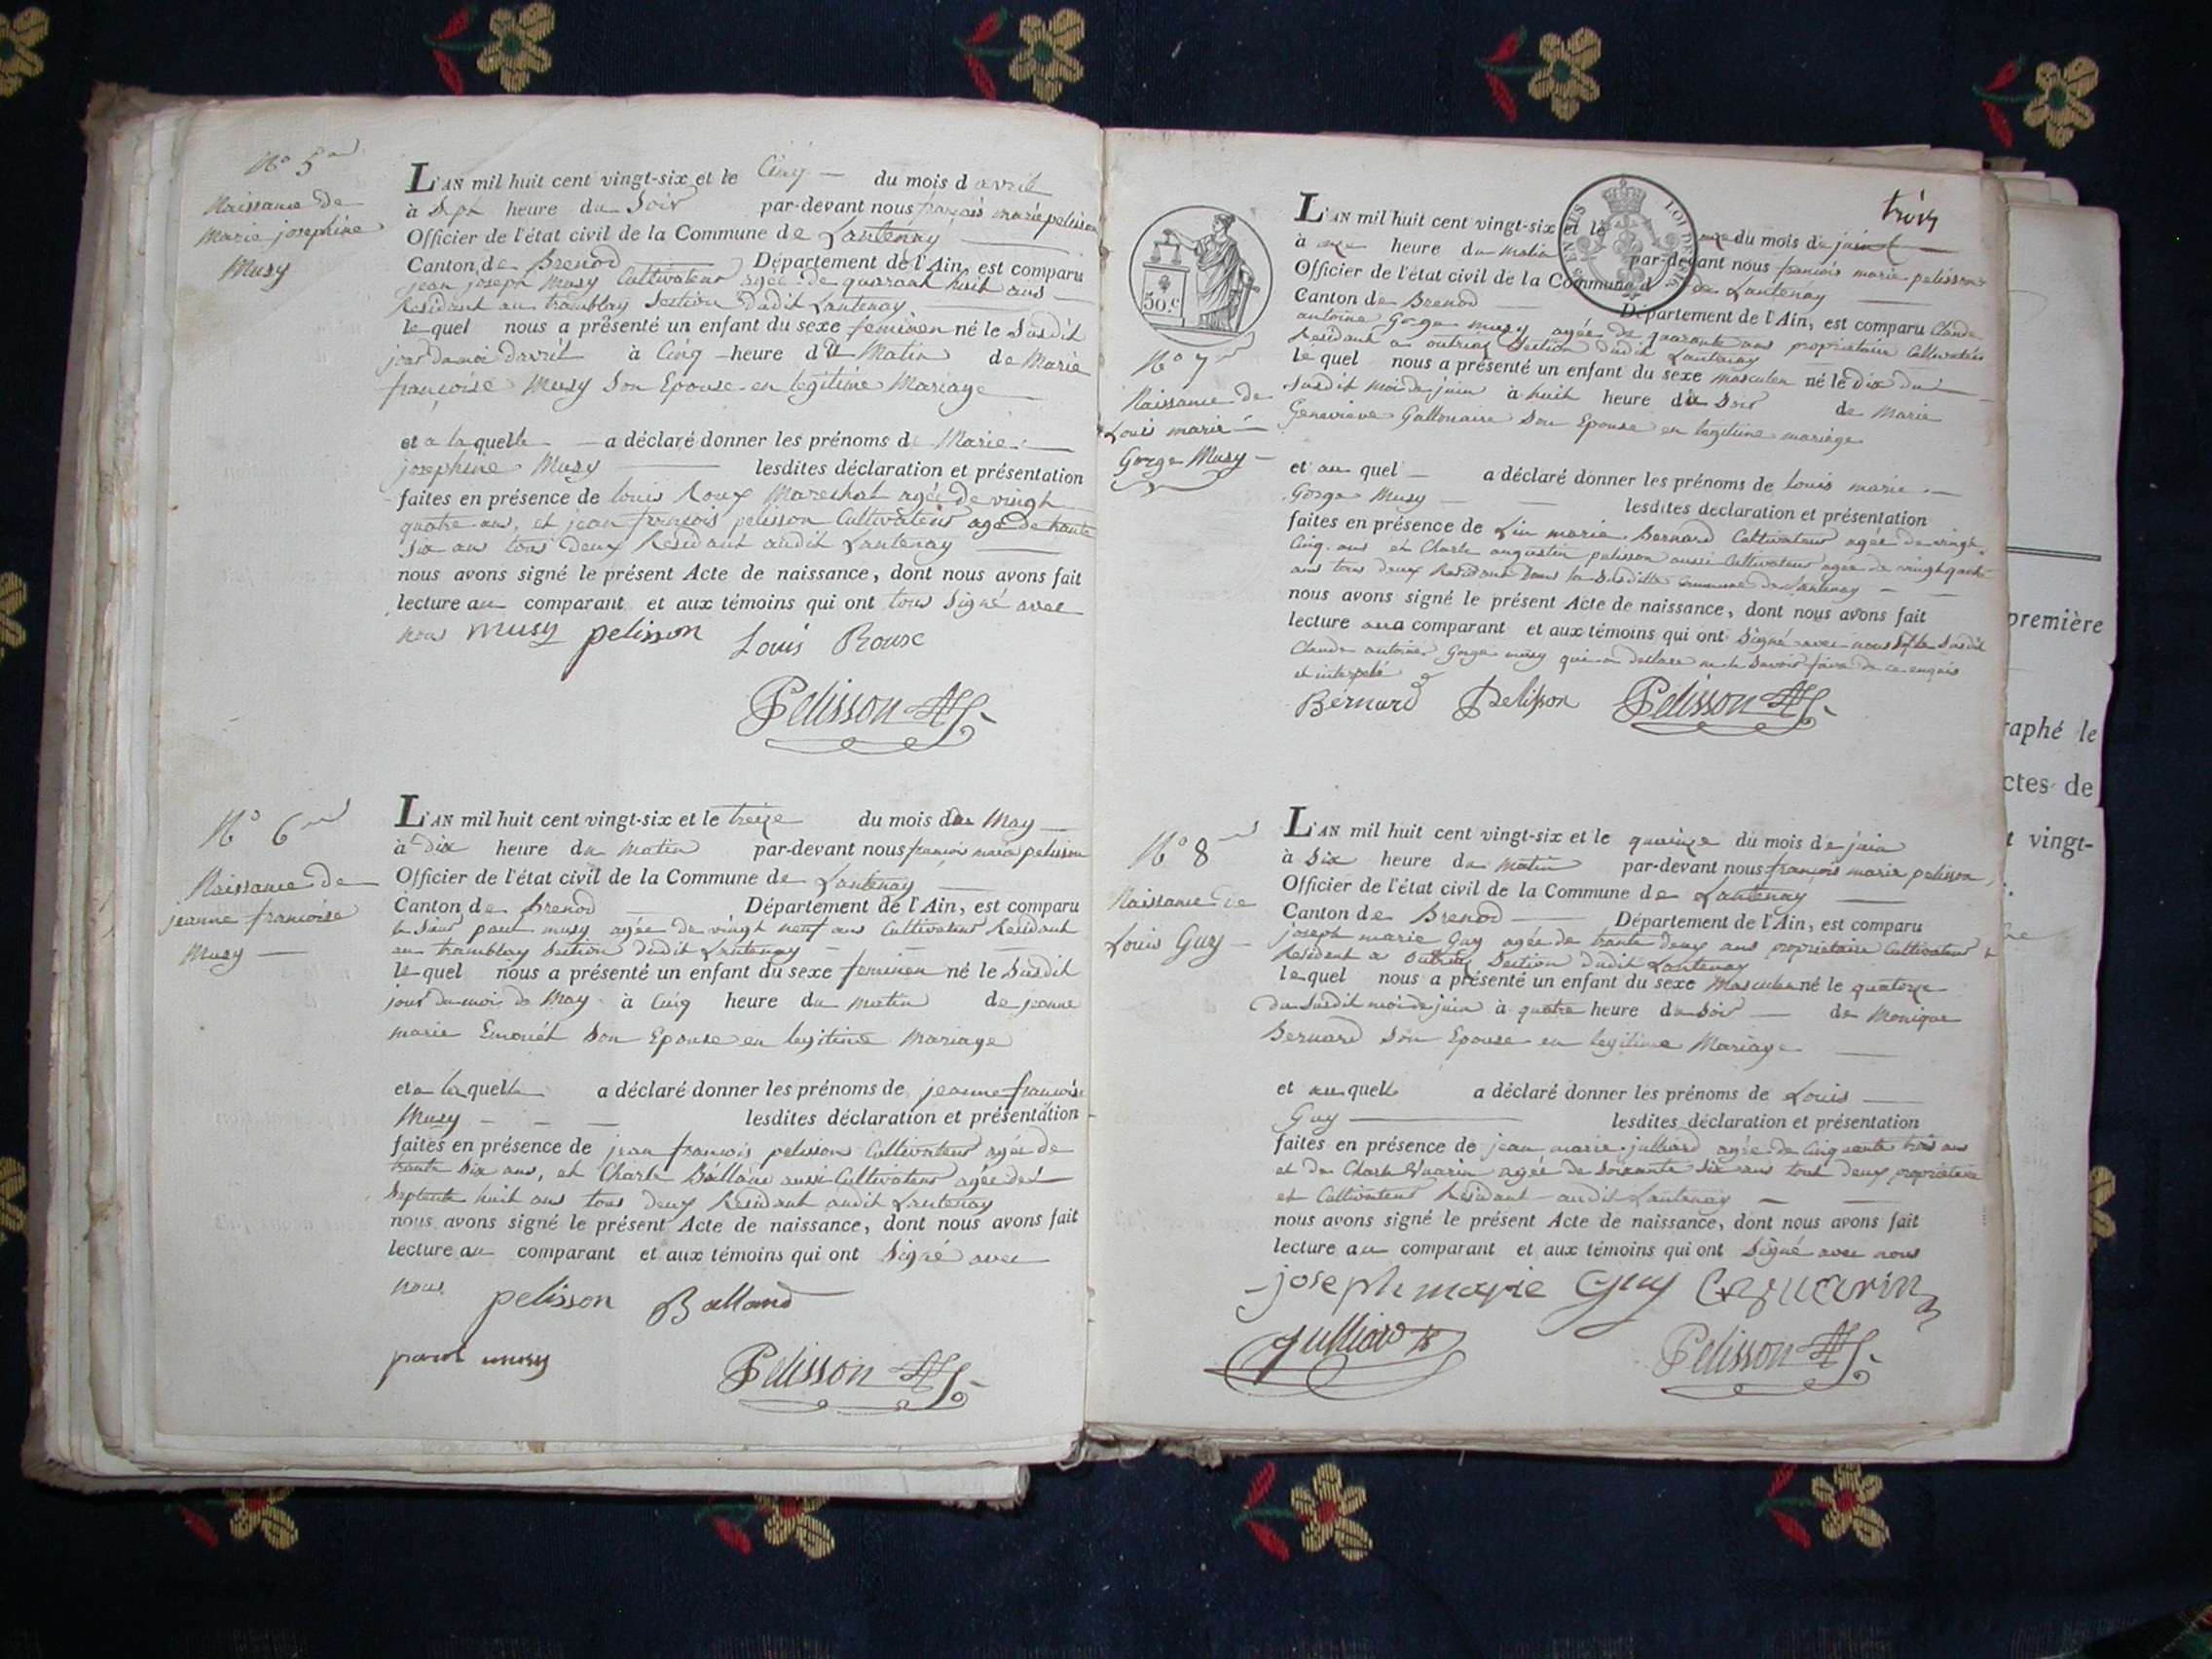 N° 5
Naissance de
Marie josephine
Musy
L'AN mil huit cent vingt-six et le Cinq du mois d avril
à Sept heure du Soir par-devant nous françois marie pelisson
Officier de l'état civil de la Commune de Lantenay
Canton de Brenod Département de l'Ain, est comparu
jean joseph Musy Cultivateur agée de quarant huit ans
Residant au tramblay Section dudit Lantenay
le quel nous a présenté un enfant du sexe feminen né le Susdit
jour du moi davril à Cinq heure du Matin de Marie
françoise Musy Son Epouse en legitime Mariage
et a laquelle a déclaré donner les prénoms de Marie
josephine Musy lesdites déclaration et présentation
faites en présence de louis Roux Marechal agée de vingt
quatre ans, et jean françois pelisson Cultivateur age de trante
Six ans tous deux Residant audit Lantenay
nous avons signé le présent Acte de naissance, dont nous avons fait
lecture au comparant et aux témoins qui ont tous Signé avec
nous musy pelisson Louis Roux
Pelisson
N° 6
Naissance de
jeanne francoise
Musy
L'AN mil huit cent vingt-six et le treize du mois de May
à dix heure du matin par-devant nous francois marie pelisson
Officier de l'état civil de la Commune de Lantenay
Canton de Brenod Département de l'Ain, est comparu
le Sieur paul musy agée de vingt neuf ans Cultivateur Residant
au tramblay Section dudit Lantenay
le quel nous a présenté un enfant du sexe feminen né le Susdit
jour du moi de May à Cinq heure du matin de jeanne
marie Emonét Son Epouse en legitime Mariage
et a laquelle a déclaré donner les prénoms de jeanne francoise
Musy lesdites déclaration et présentation
faites en présence de jean francois pelisson Cultivateur agée de
trante Six ans, et Charle Balland aussi Cultivateur agée de
Septente huit ans tous deux Residant audit Lantenay
nous avons signé le présent Acte de naissance, dont nous avons fait
lecture au comparant et aux témoins qui ont Signé avec
nous pelisson Balland
paul musy Pelisson
trois
50.c
N° 7
Naissance de
Louis marie
Gorge Musy
L'AN mil huit cent vingt-six et le onze du mois de juin
à onze heure du matin par-devant nous francois marie pelisson
Officier de l'état civil de la Commune de Lantenay
Canton de Brenod Département de l'Ain, est comparu Claude
antoine Gorge musy agée de quarante ans propriétaire Cultivateur
Residant a outriaz Section dudit Lantenay
le quel nous a présenté un enfant du sexe masculen né le dix du
susdit moi de juin à huit heure du Soir de Marie
Genevieve Gallonaire Son Epouse en legitime mariage
et au quel a déclaré donner les prénoms de louis marie
Gorge Musy lesdites déclaration et présentation
faites en présence de Lin marie Bernard Cultivateur agée de vingt
Cinq ans et Charle augustin pelisson aussi Cultivateur agée de vingt quatre
ans tous deux Residant dans la Susditte Commune de Lantenay
nous avons signé le présent Acte de naissance, dont nous avons fait
lecture au comparant et aux témoins qui ont Signé avec nous le Susdit
Claude antoine Gorge musy qui a declaré ne le Savoir faire de ce enquis
et interpelé
Bernard Pelisson Pelisson
N° 8
Naissance de
Louis Guy
L'AN mil huit cent vingt-six et le quinze du mois de juin
à Six heure du matin par-devant nous françois marie pelisson
Officier de l'état civil de la Commune de Lantenay
Canton de Brenod Département de l'Ain, est comparu
joseph marie Guy agée de trante deux ans propriétaire Cultivateur
Resident a outriaz Section dudit Lantenay
le quel nous a présenté un enfant du sexe Masculen né le quatorze
du Susdit moi de juin à quatre heure du Soir de Monique
Bernard Son Epouse en legitime Mariage
et au quelle a déclaré donner les prénoms de Louis
Guy lesdites déclaration et présentation
faites en présence de jean marie julliard agée de Cinquante trois ans
et de Charle Guarin agée de Soixante Six ans tout deux propriétaire
et Cultivateur Residant audit Lantenay
nous avons signé le présent Acte de naissance, dont nous avons fait
lecture au comparant et aux témoins qui ont Signé avec nous
joseph marie Guy Guarin
julliard Pelisson
première
raphé le
ctes de
t vingt-